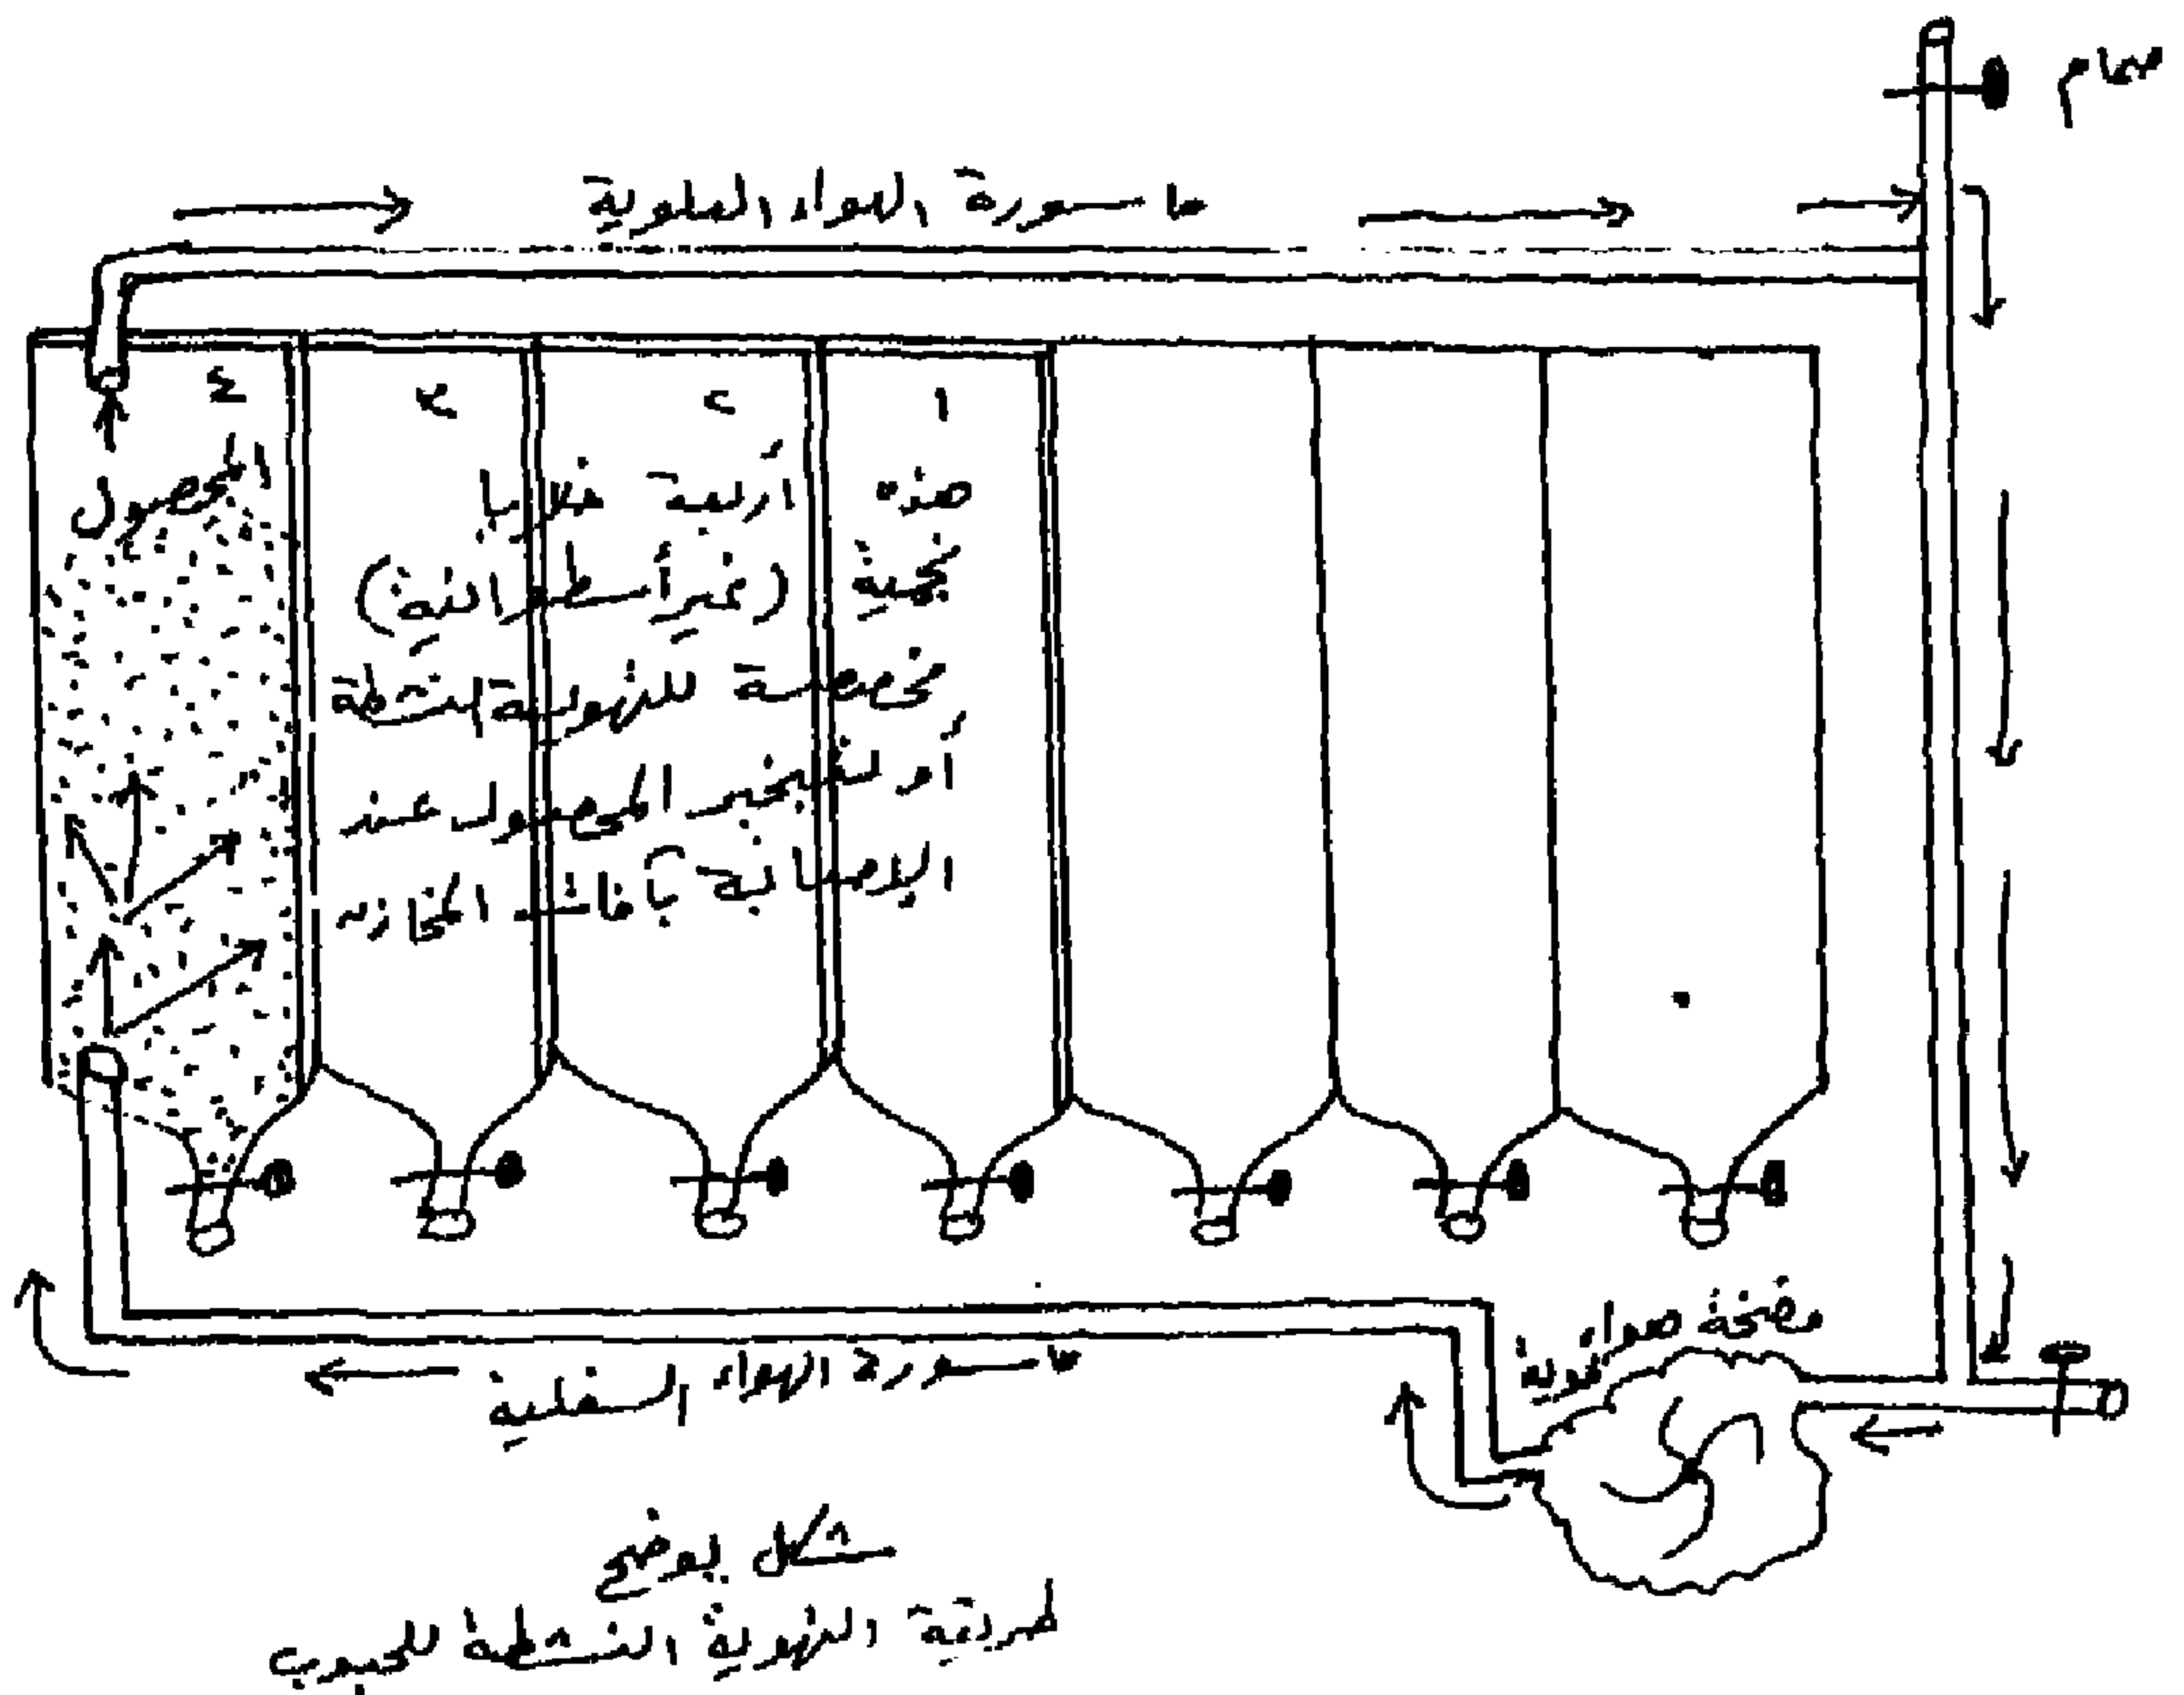 صمام
ماسورة الهواء العلوية
١ ٢ ٣ ٤
المحصول
هذه أربعة خلايا
تخزين (غير أسطوانية)
مخصصة للتهوية النشطة
أو لتخزين المحصول عند
الإصابة بآفات المخازن
مضخة هواء قوية
ماسورة الهواء السفلية
شكل يوضح
طريقة التهوية النشطة للحبوب